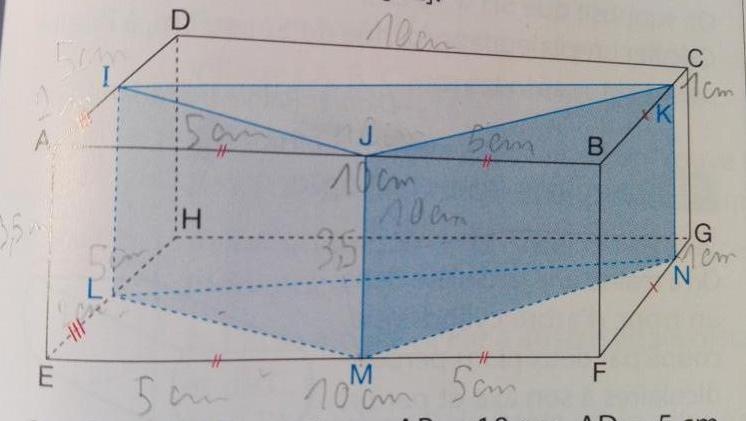 D
10cm
C
5cm
I
1cm
K
A
5cm
J
5cm
B
10cm
10cm
H
3,5
G
5cm
1cm
L
N
E
M
F
5cm
10cm
5cm